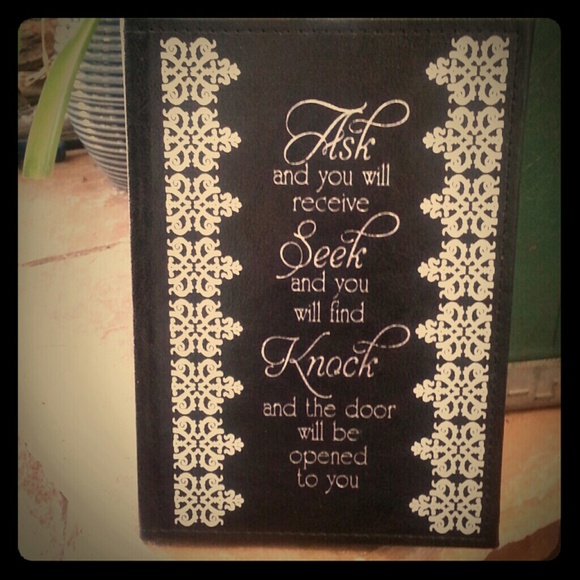 Ask
and you will
receive
Seek
and you
will find
Knock
and the door
will be
opened
to you